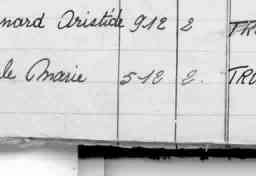 nard Aristide 9.12 2 TR
le Marie 5-12 2. TRO